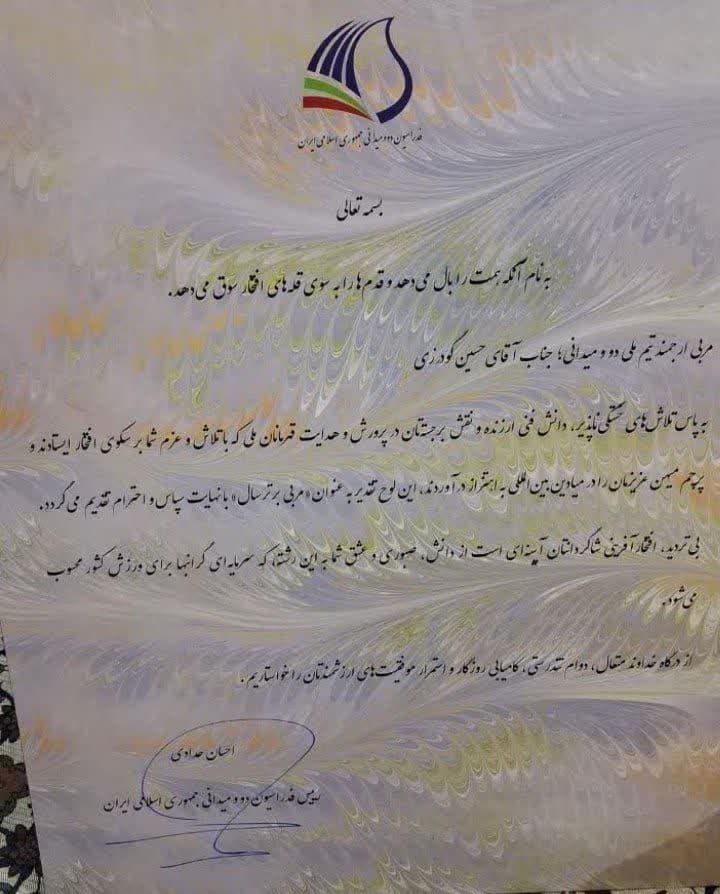 فدراسیون دو و میدانی جمهوری اسلامی ایران
بسمه تعالی
به نام آنکه همت را بال می‌دهد و قدم‌ها را به سوی قله‌های افتخار سوق می‌دهد.
مربی ارجمند تیم ملی دو و میدانی؛ جناب آقای حسین گودرزی
به پاس تلاش‌های خستگی‌ناپذیر، دانش فنی ارزنده و نقش برجستتان در پرورش و هدایت قهرمانان ملی که با تلاش و عزم شما بر سکوی افتخار ایستادند و
پرچم میهن عزیزمان را در میادین بین‌المللی به اهتزاز درآوردند، این لوح تقدیر به عنوان «مربی برتر سال» با نهایت سپاس و احترام تقدیم می‌گردد.
بی‌تردید، افتخارآفرینی شاگردانتان آیینه‌ای است از دانش، صبوری و عشق شما به این رشته، که سرمایه‌ای گرانبها برای ورزش کشور محسوب
می‌شود.
از درگاه خداوند متعال، دوام تندرستی، کامیابی روزگار و استمرار موفقیت‌های ارزشمندتان را خواستاریم.
احسان حدادی
رییس فدراسیون دو و میدانی جمهوری اسلامی ایران